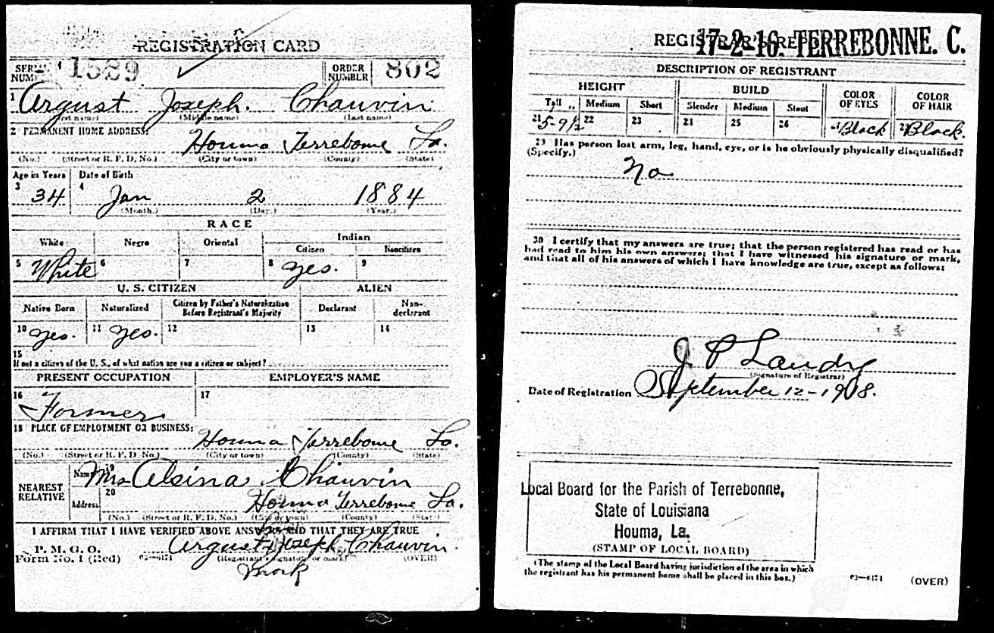 REGISTRATION CARD
SERIAL NUMBER 1589 ORDER NUMBER 802
1 Argust Joseph. Chauvin
(First name) (Middle name) (Last name)
2 PERMANENT HOME ADDRESS:
Houma Terrebonne La.
(No.) (Street or R. F. D. No.) (City or town) (County) (State)
Age in Years Date of Birth
3 34 4 Jan 2 1884
(Month.) (Day.) (Year.)
RACE
White Negro Oriental Indian
Citizen Noncitizen
5 White 6 7 8 yes. 9
U. S. CITIZEN ALIEN
Native Born Naturalized Citizen by Father's Naturalization Before Registrant's Majority Declarant Non-declarant
10 yes. 11 yes. 12 13 14
15 If not a citizen of the U. S., of what nation are you a citizen or subject?
PRESENT OCCUPATION EMPLOYER'S NAME
16 Farmer 17
18 PLACE OF EMPLOYMENT OR BUSINESS:
Houma Terrebonne La.
(No.) (Street or R. F. D. No.) (City or town) (County) (State)
NEAREST RELATIVE Name 19 Mrs Alsina Chauvin
Address 20 Houma Terrebonne La.
(No.) (Street or R. F. D. No.) (City or town) (County) (State)
I AFFIRM THAT I HAVE VERIFIED ABOVE ANSWERS AND THAT THEY ARE TRUE
P. M. G. O.
Form No. 1 (Red) Argust Joseph Chauvin
(Registrant's signature or mark) (OVER)
Mark
REGISTRAR'S REPORT
17-2-16. TERREBONNE. C.
DESCRIPTION OF REGISTRANT
HEIGHT BUILD COLOR OF EYES COLOR OF HAIR
Tall Medium Short Slender Medium Stout
21 5-9½ 22 23 24 25 26 27 Black 28 Black.
29 Has person lost arm, leg, hand, eye, or is he obviously physically disqualified?
(Specify.)
No
30 I certify that my answers are true; that the person registered has read or has
had read to him his own answers; that I have witnessed his signature or mark,
and that all of his answers of which I have knowledge are true, except as follows:
J P Landry
(Signature of Registrar)
Date of Registration September 12-1918.
Local Board for the Parish of Terrebonne,
State of Louisiana
Houma, La.
(STAMP OF LOCAL BOARD)
(The stamp of the Local Board having jurisdiction of the area in which
the registrant has his permanent home shall be placed in this box.)
03—6171 (OVER)